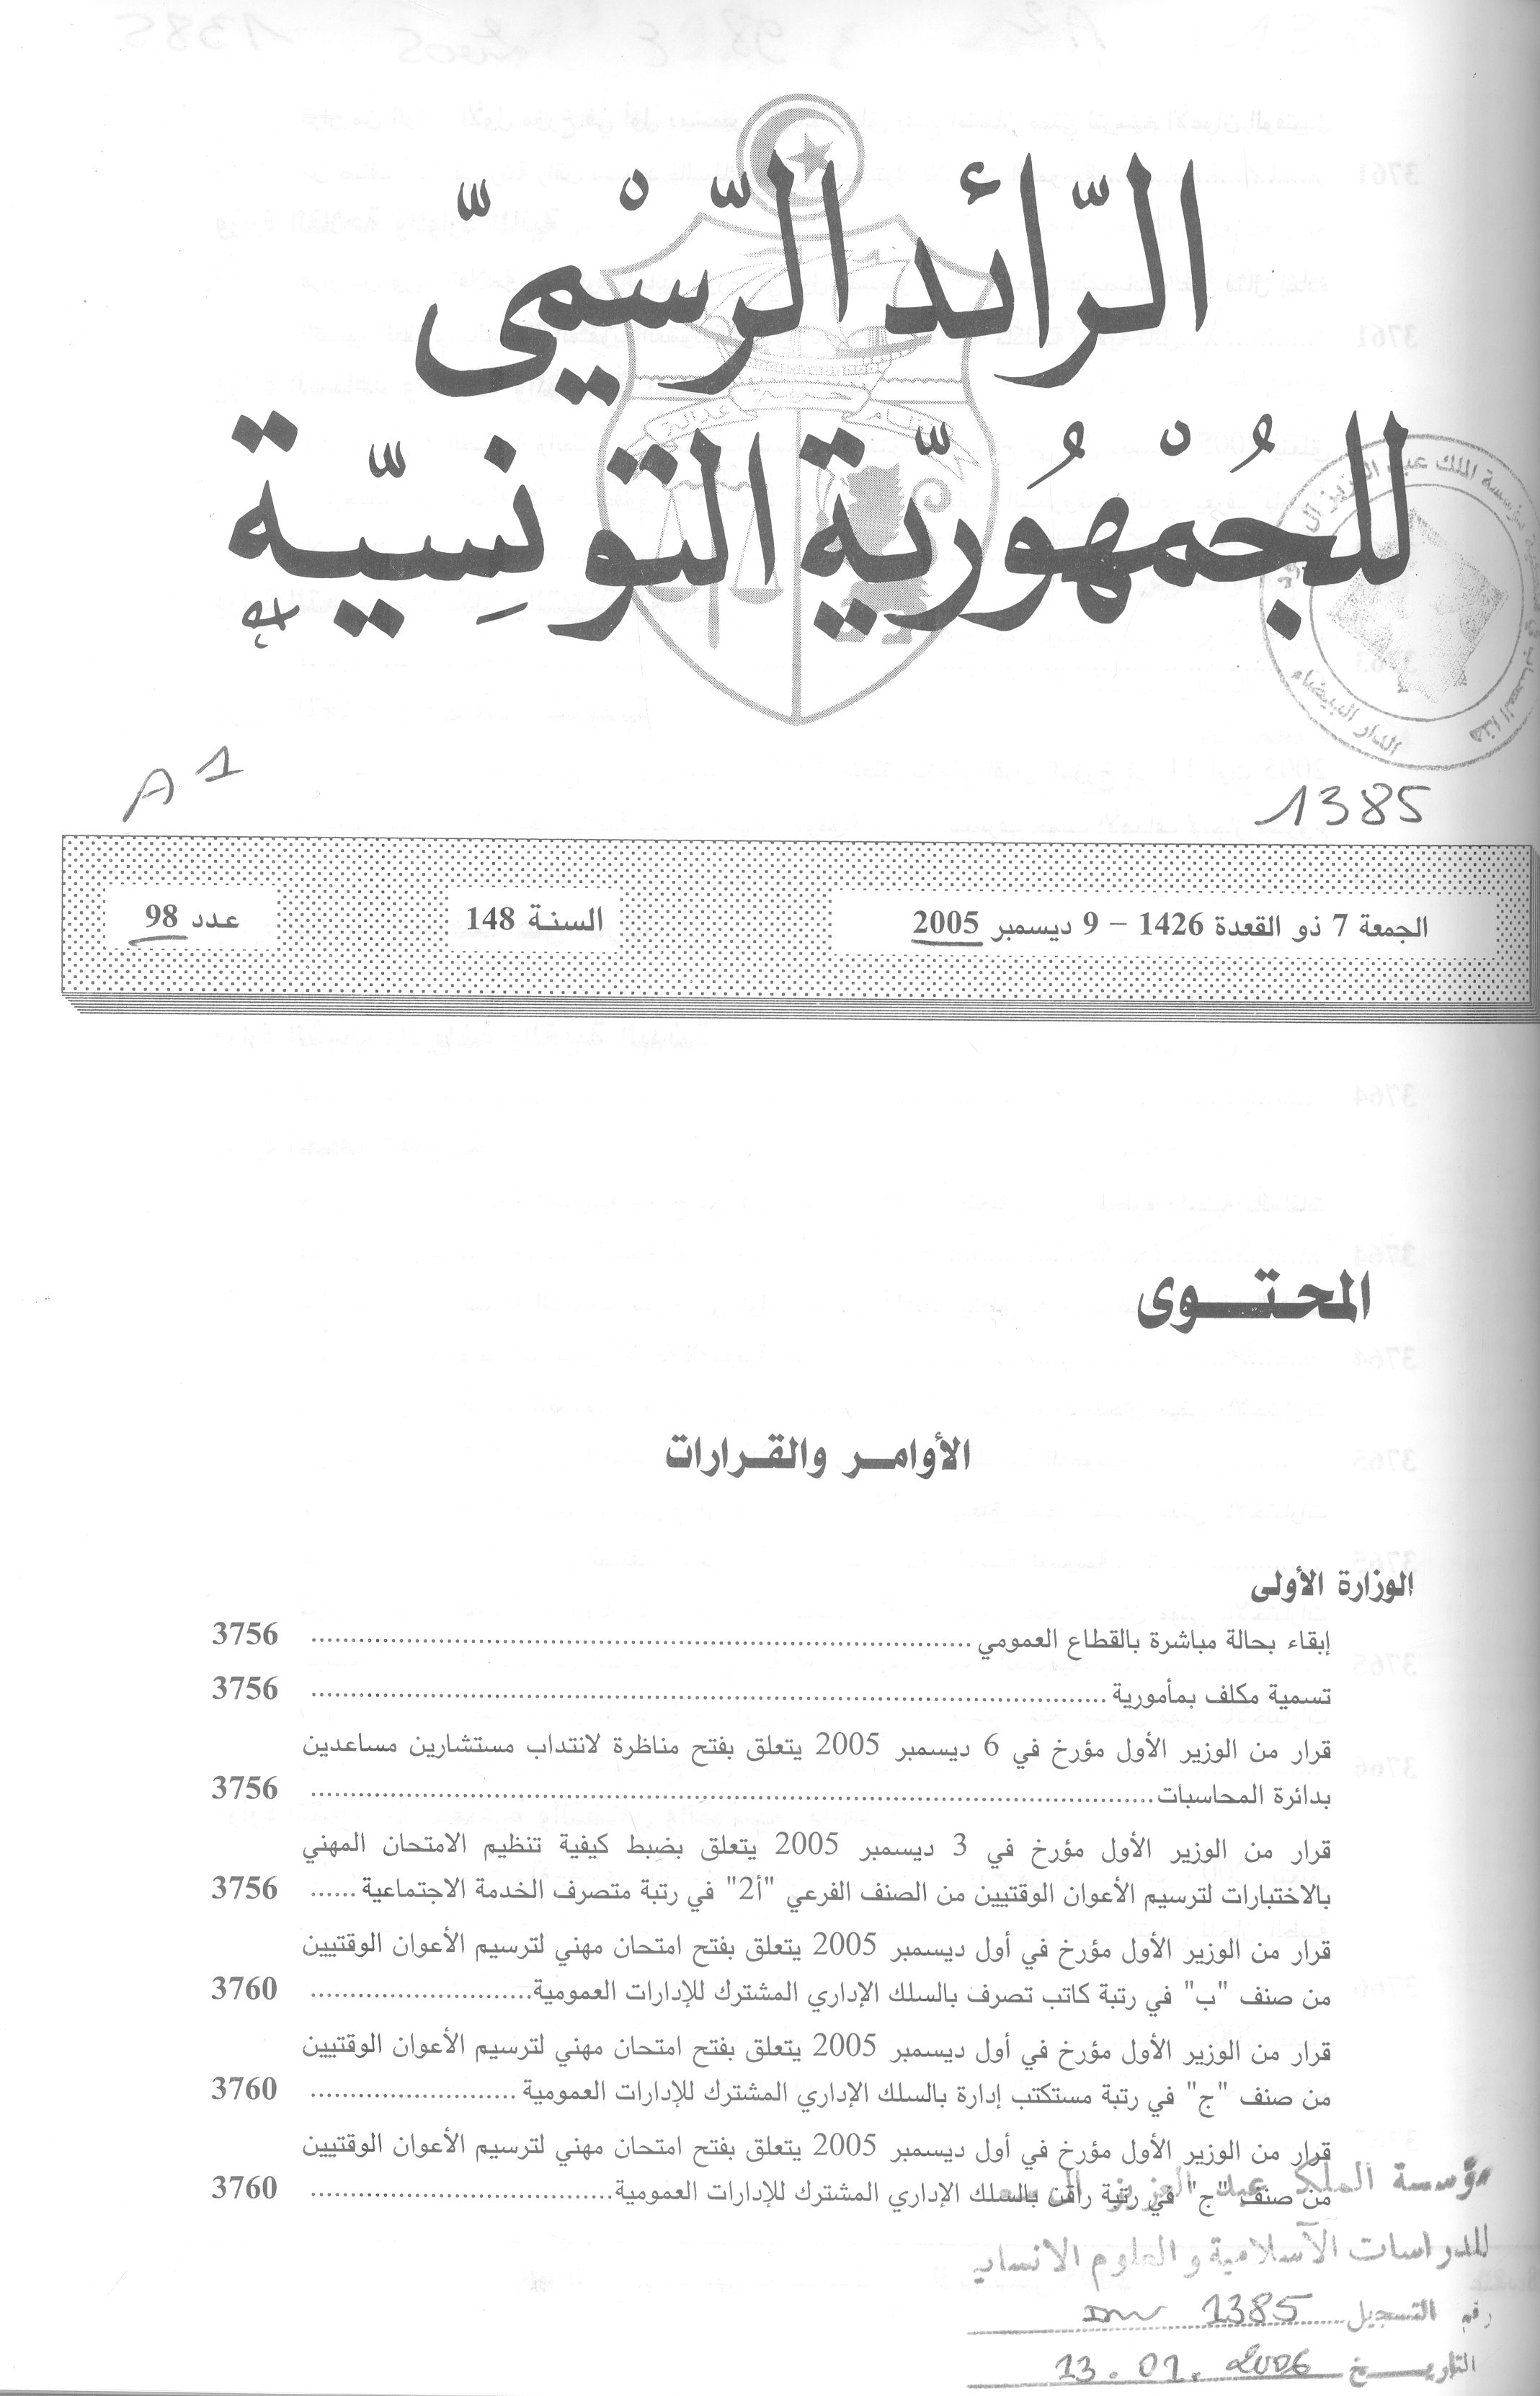 الرّائد الرّسْميّ
للجُمْهُوريّة التّونِسيّة
نظام حرية عدالة
A1
1385
الجمعة 7 ذو القعدة 1426 – 9 ديسمبر 2005 السنة 148 عدد 98
المحتوى
الأوامر والقرارات
الوزارة الأولى
إبقاء بحالة مباشرة بالقطاع العمومي 3756
تسمية مكلف بمأمورية 3756
قرار من الوزير الأول مؤرخ في 6 ديسمبر 2005 يتعلق بفتح مناظرة لانتداب مستشارين مساعدين
بدائرة المحاسبات 3756
قرار من الوزير الأول مؤرخ في 3 ديسمبر 2005 يتعلق بضبط كيفية تنظيم الامتحان المهني
بالاختبارات لترسيم الأعوان الوقتيين من الصنف الفرعي "أ2" في رتبة متصرف الخدمة الاجتماعية 3756
قرار من الوزير الأول مؤرخ في أول ديسمبر 2005 يتعلق بفتح امتحان مهني لترسيم الأعوان الوقتيين
من صنف "ب" في رتبة كاتب تصرف بالسلك الإداري المشترك للإدارات العمومية 3760
قرار من الوزير الأول مؤرخ في أول ديسمبر 2005 يتعلق بفتح امتحان مهني لترسيم الأعوان الوقتيين
من صنف "ج" في رتبة مستكتب إدارة بالسلك الإداري المشترك للإدارات العمومية 3760
قرار من الوزير الأول مؤرخ في أول ديسمبر 2005 يتعلق بفتح امتحان مهني لترسيم الأعوان الوقتيين
من صنف "ج" في رتبة راقن بالسلك الإداري المشترك للإدارات العمومية 3760
مؤسسة الملك عبد العزيز
للدراسات الآسلامية والعلوم الانسانية
رقم التسجيل 1385
التاريخ 13.01.2006
الدار البيضاء